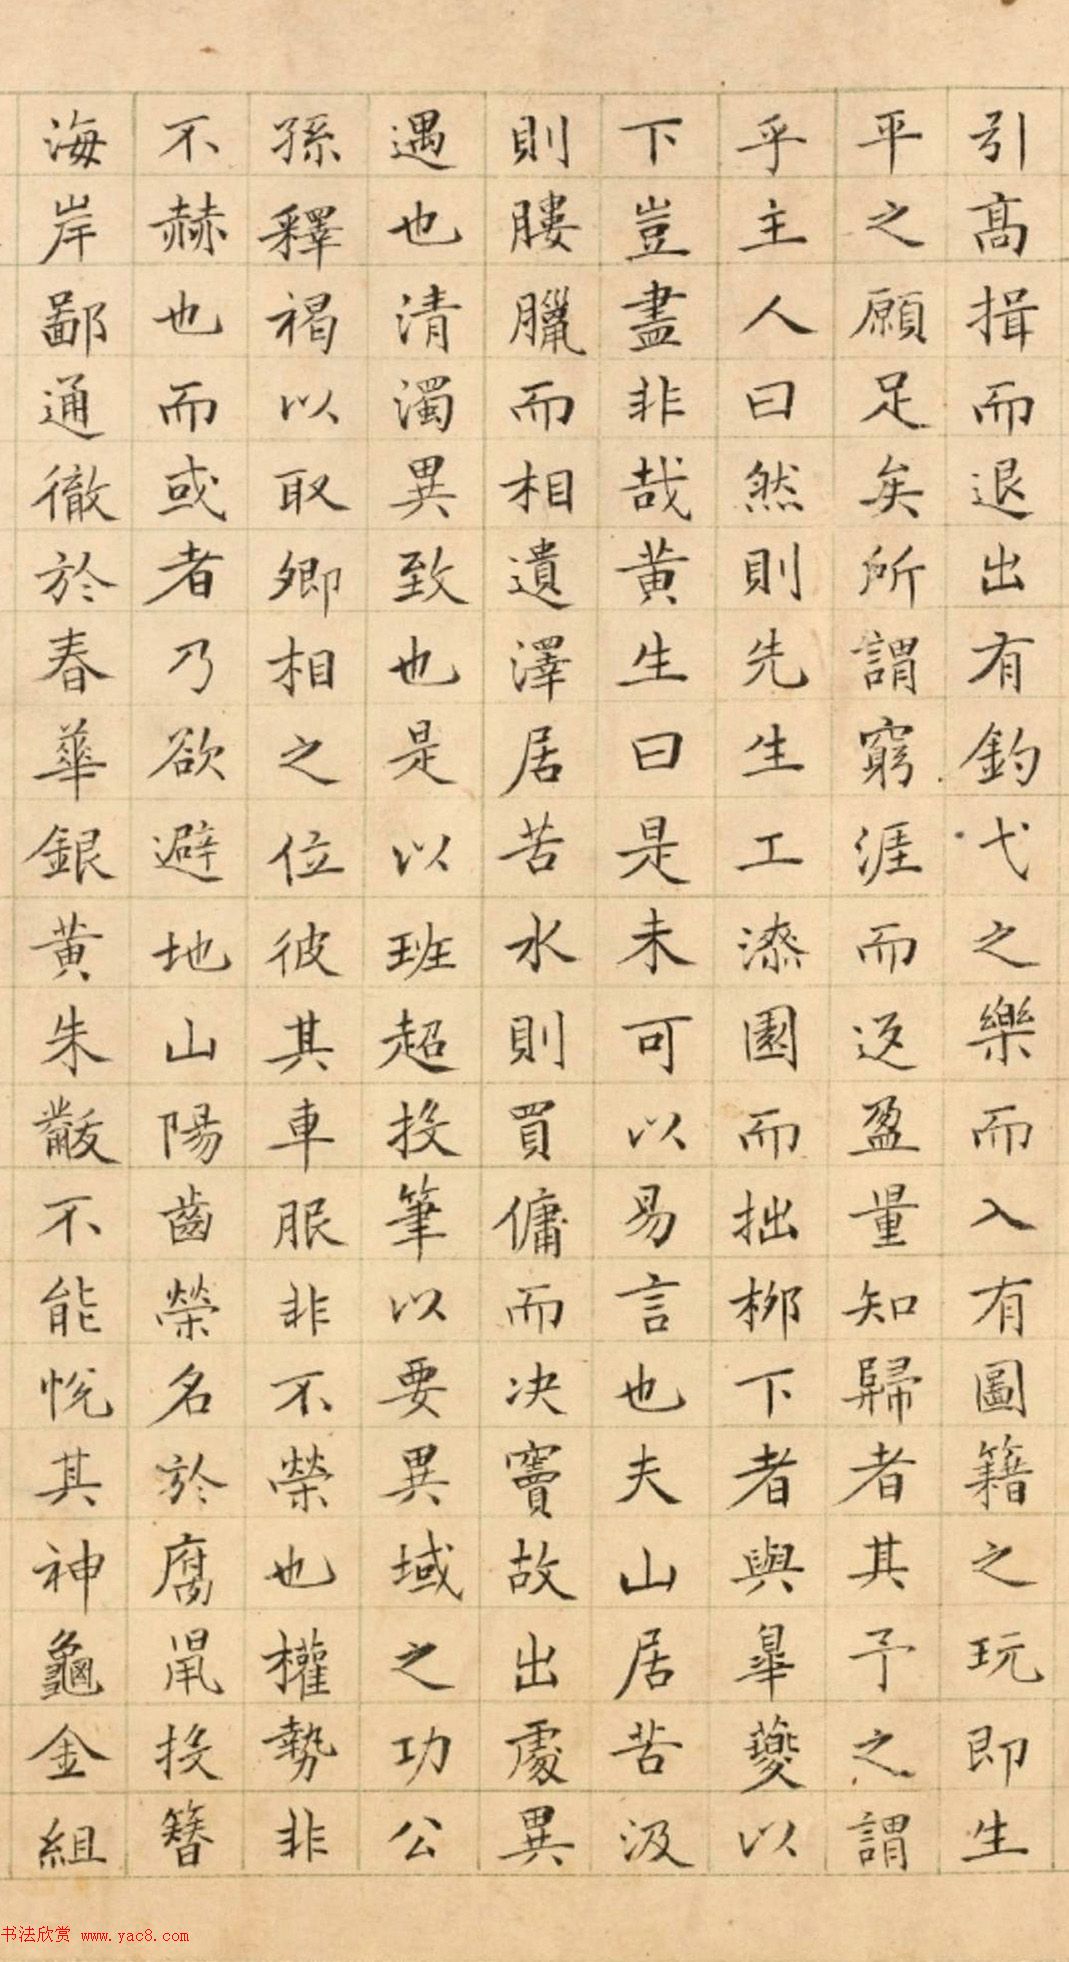 引高揖而退出有釣弋之樂而入有圖籍之玩即生
平之願足矣所謂窮涯而返盈量知歸者其予之謂
乎主人曰然則先生工漆園而拙柳下者與皋夔以
下豈盡非哉黄生曰是未可以易言也夫山居苦汲
則膢臘而相遺澤居苦水則買傭而决竇故出處異
遇也清濁異致也是以班超投筆以要異域之功公
孫釋褐以取卿相之位彼其車服非不榮也權勢非
不赫也而或者乃欲避地山陽齒榮名於腐鼠投簪
海岸鄙通徹於春華銀黄朱黻不能悅其神龜金組
书法欣赏 www.yac8.com